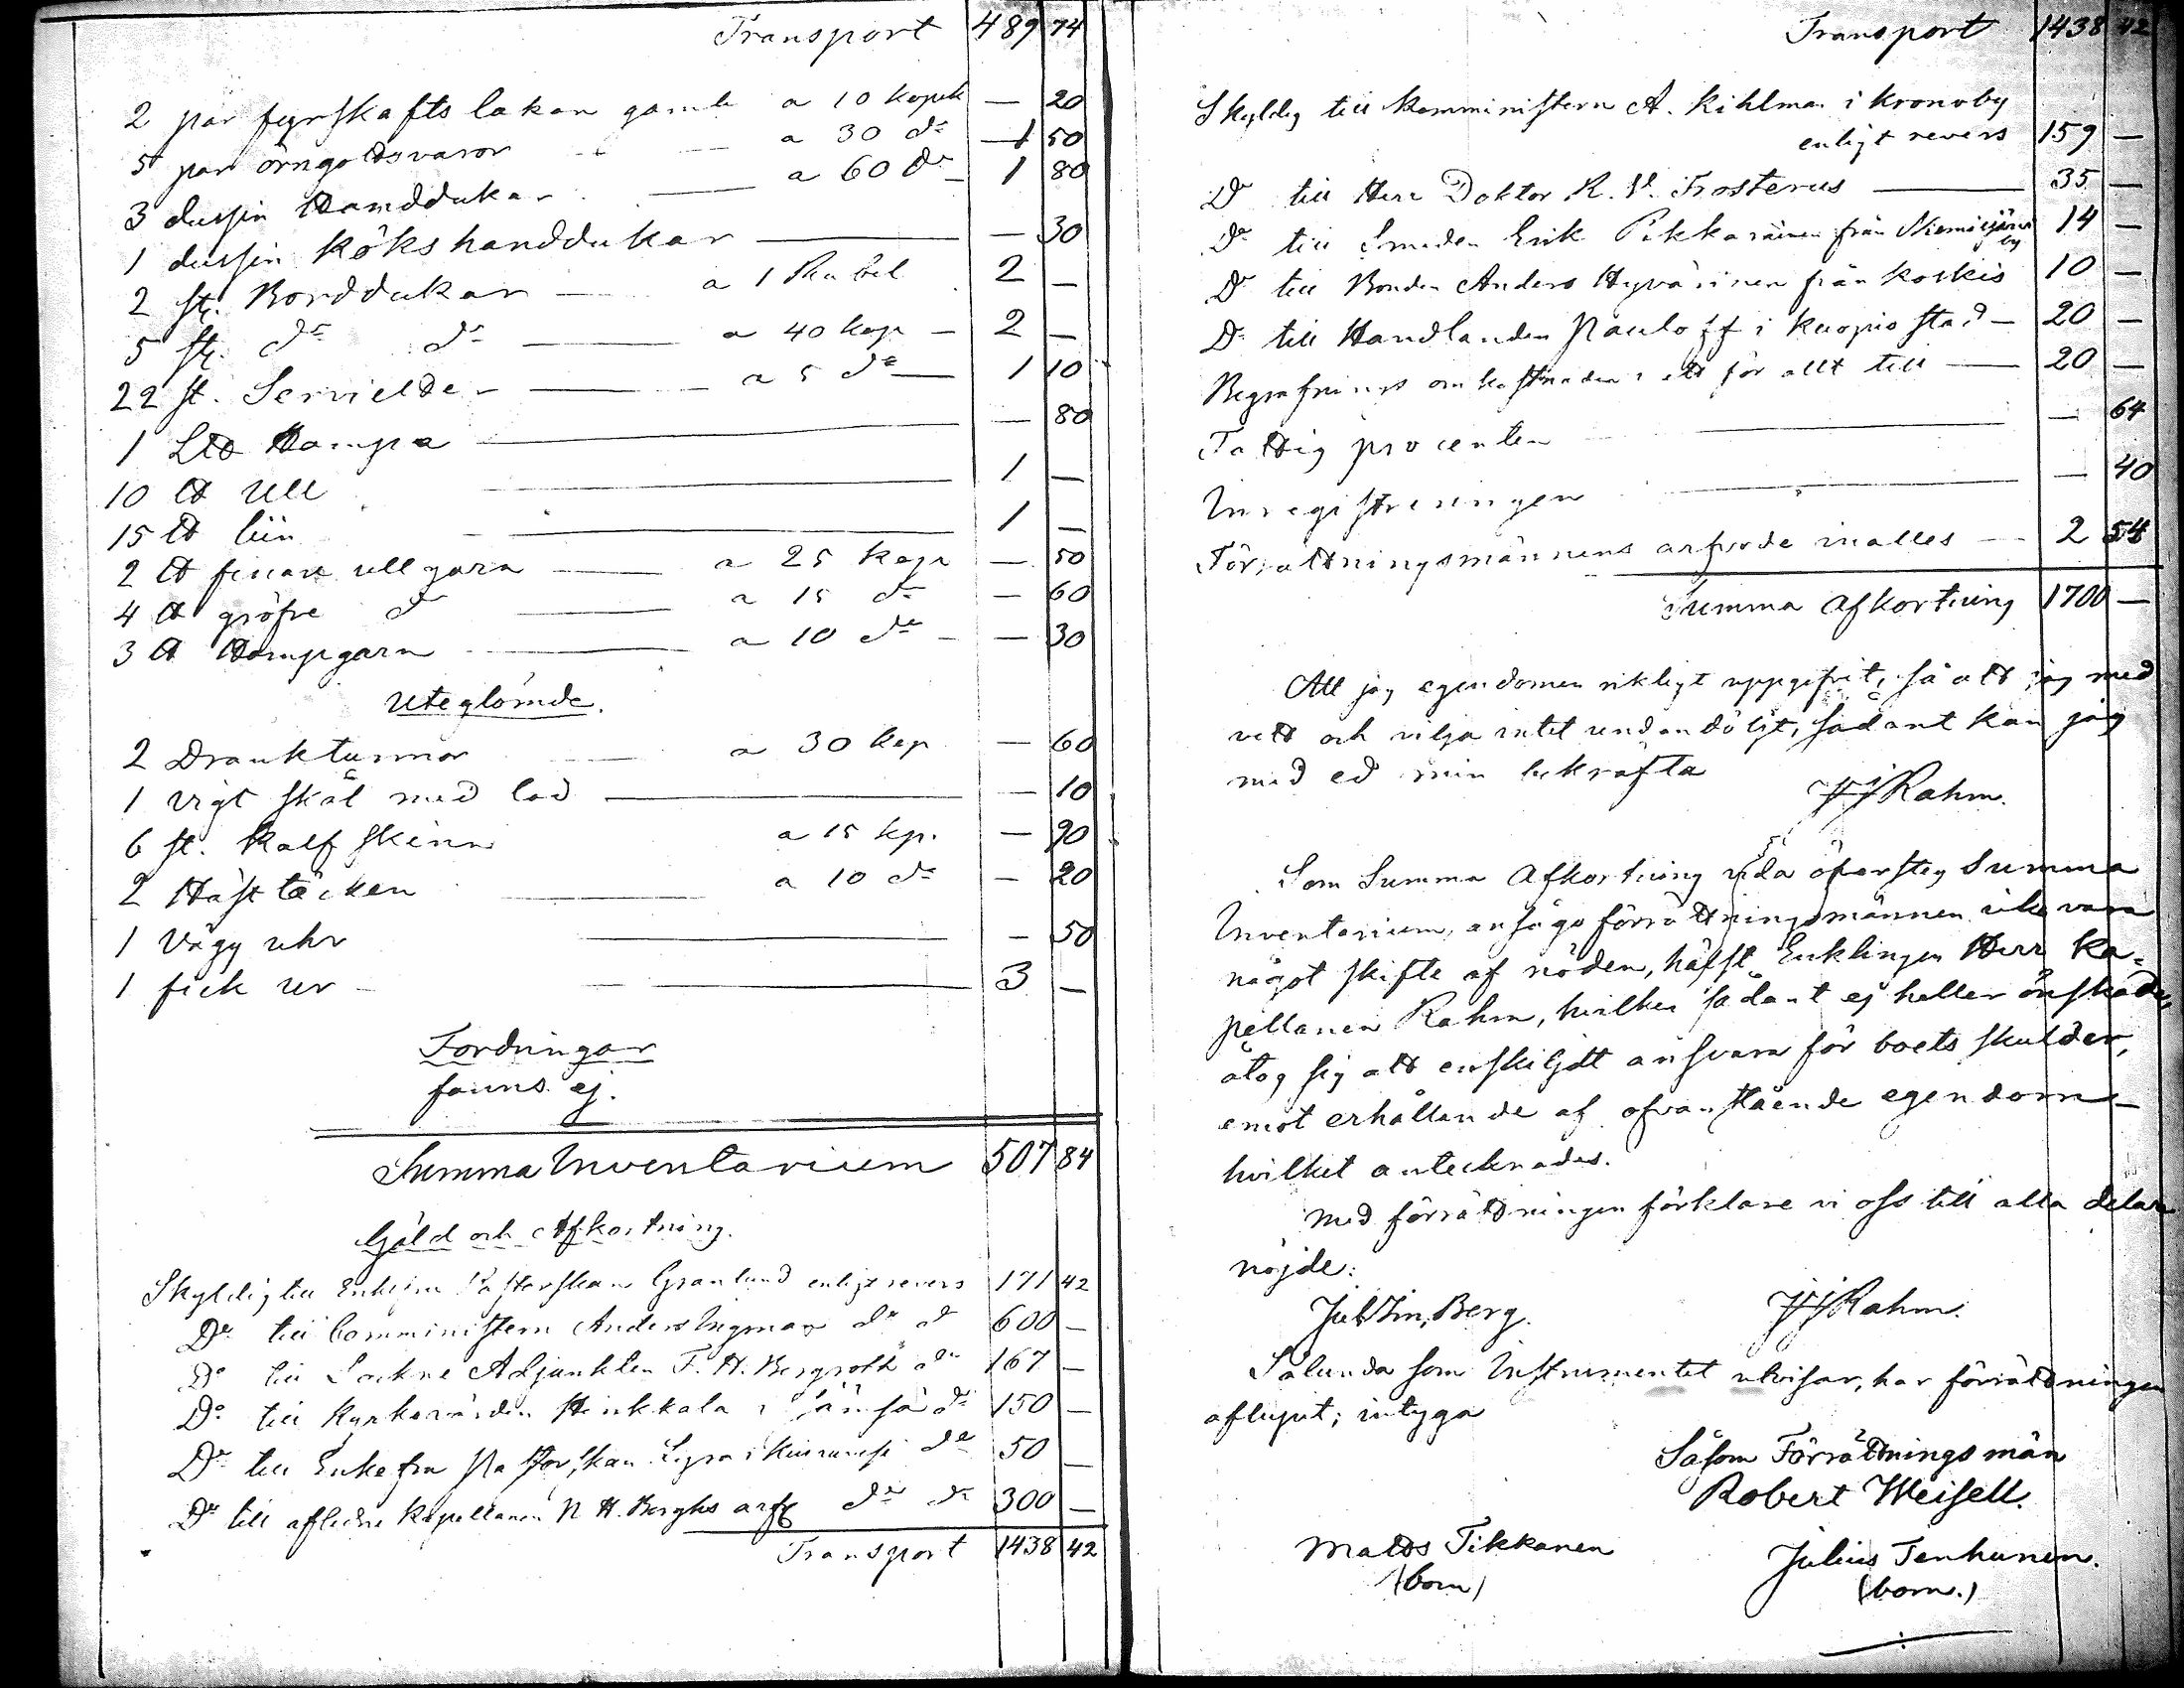 Transport 489 74
2 par fyrskafts lakan gamla a 10 kopek — 20
5 par örngottsvaror a 30 do 1 50
3 dussin Handdukar a 60 do 1 80
1 dussin kökshanddukar — 30
2 st. Borddukar a 1 Rubel 2 —
5 st. do do a 40 kop 2 —
22 st. Servietter a 5 do 1 10
1 Hampa — 80
10 ℔ Ull 1 —
15 ℔ lin 1 —
2 ℔ finare ullgarn a 25 kop — 50
4 ℔ gröfre do a 15 do — 60
3 ℔ Hampgarn a 10 do — 30
Uteglömde.
2 Dranktunnor a 30 kop — 60
1 vigt skål med lod — 10
6 st. Kalfskinn a 15 kp. — 90
2 Hästtäcken a 10 do — 20
1 Vägg uhr — 50
1 fick ur 3 —
Fordringar
fanns ej.
Summa Inventarium 507 84
Gäld och Afkortning.
Skyldig till Enkefru Pastorskan Granlund enligt revers 171 42
Do till Comministern Anders Ingman do do 600 —
Do till Sockne Adjunkten F. H. Bergroth do 167 —
Do till Kyrkovärden Hinkkala i Jämsä do 150 —
Do till Enkefru Pastorskan do 50 —
Do till aflidne Kapellanen N H. Berghs arfv. do do 300 —
Transport 1438 42
Transport 1438 42
Skyldig till Komministern A. Kihlman i Kronoby
enligt revers 159 —
Do till Herr Doktor R. Frosterus 35 —
Do till Smeden Erik Pikkarainen från Niemisjärvi by 14 —
Do till Bonden Anders Hyvärinen från Koskis 10 —
Do till Handlanden Pauloff i Kuopio stad — 20 —
Begrafnings omkostnaden i ett för allt till 20 —
Fattig procenten — 64
Inregistreringen — 40
Förrättningsmännens arfvode inalles 2 54
Summa Afkortning 1700 —
Att jag egendomen riktigt uppgifvit, så att jag med
vett och vilja intet undandöljt, sådant kan jag
med ed min bekräfta
JJRahm.
Som Summa Afkortning vida öfversteg Summa
Inventarium, ansågo förrättningsmännen icke vara
något skifte af nöden, hälst Enklingen Herr Ka-
pellanen Rahm, hvilken sådant ej heller önskade,
åtog sig att enskiljdt ansvara för boets skulder,
emot erhållande af ofvanstående egendom —
hvilket antecknades.
Med förrättningen förklare vi oss till alla delar
nöjde:
Jul. Im. Berg. JJRahm.
Sålunda som Instrumentet utvisar, har förrättningen
aflupit; intyga
Såsom Förrättningsmän
Robert Weisell.
Matts Tikkanen Julius Tenhunen.
(bom) (bom.)